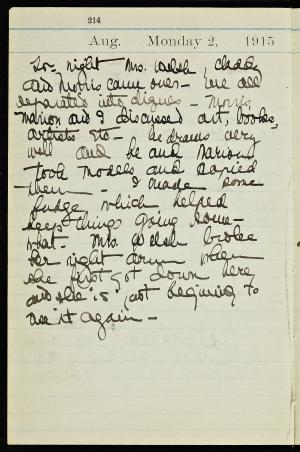 214
Aug. Monday 2, 1915
To-night Mrs. Welsh, Gladdy
and Morris came over - We all
separated into cliques - Morris,
Marion and I discussed art, books,
artists etc - he draws very
well and he and Marion
took models and copied
them - I made some
fudge which helped
keep things going some-
what. Mrs. Welsh broke
her right arm when
she first got down here
and she is just beginning to
use it again -